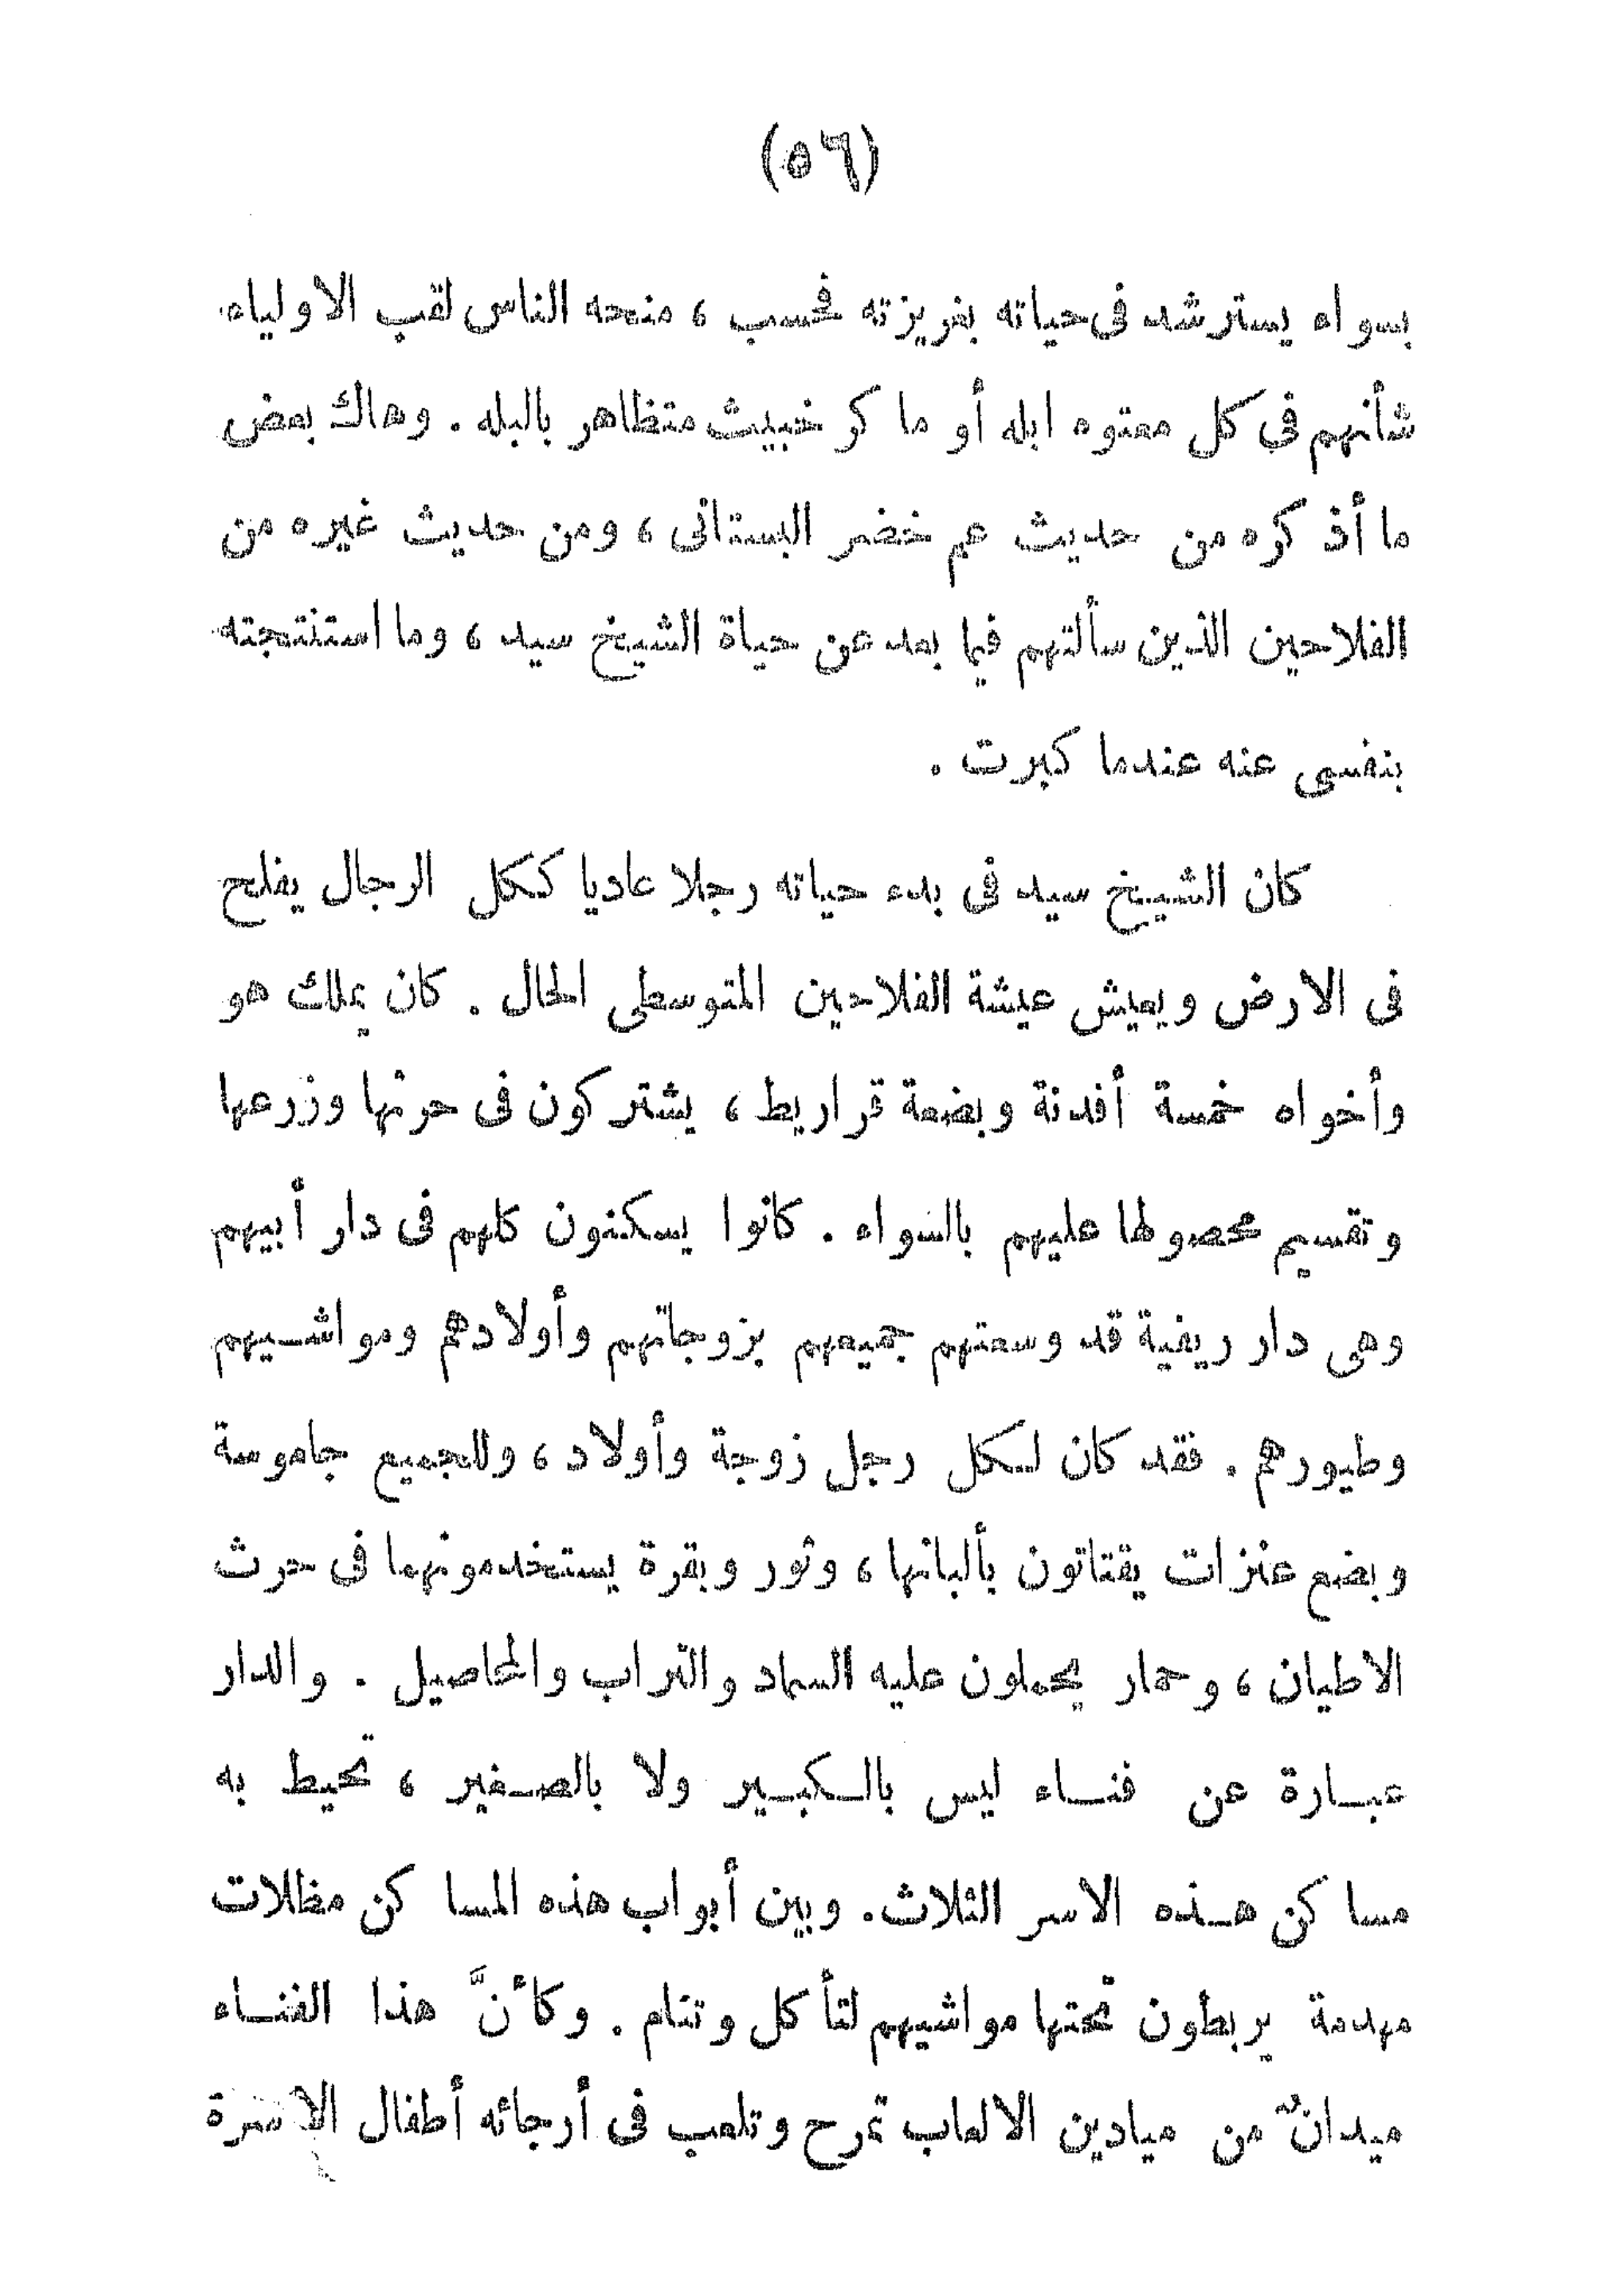 (٥٦)
بسواء يسترشد فى حياته بغريزته فحسب ، منحه الناس لقب الاولياء
شأنهم فى كل معتوه ابله أو ماكر خبيث متظاهر بالبله . وهاك بعض
ما أذكره من حديث عم خضر البستانى ، ومن حديث غيره من
الفلاحين الذين سألتهم فيما بعد عن حياة الشيخ سيد ، وما استنتجته
بنفسى عنه عندما كبرت .
كان الشيخ سيد فى بدء حياته رجلا عاديا ككل الرجال يفلح
فى الارض ويعيش عيشة الفلاحين المتوسطى الحال . كان يملك هو
وأخواه خمسة أفدنة وبضعة قراريط ، يشتركون فى حرثها وزرعها
وتقسيم محصولها عليهم بالسواء . كانوا يسكنون كلهم فى دار أبيهم
وهى دار ريفية قد وسعتهم جميعهم بزوجاتهم وأولادهم ومواشيهم
وطيورهم . فقد كان لكل رجل زوجة وأولاد ، وللجميع جاموسة
وبضع عنزات يقتاتون بألبانها ، وثور وبقرة يستخدمونهما فى حرث
الاطيان ، وحمار يحملون عليه السماد والتراب والمحاصيل . والدار
عبارة عن فناء ليس بالكبير ولا بالصغير ، تحيط به
مساكن هذه الاسر الثلاث . وبين أبواب هذه المساكن مظلات
مهدمة يربطون تحتها مواشيهم لتأكل وتنام . وكأنَّ هذا الفناء
ميدانٌ من ميادين الالعاب تمرح وتلعب فى أرجائه أطفال الاسرة